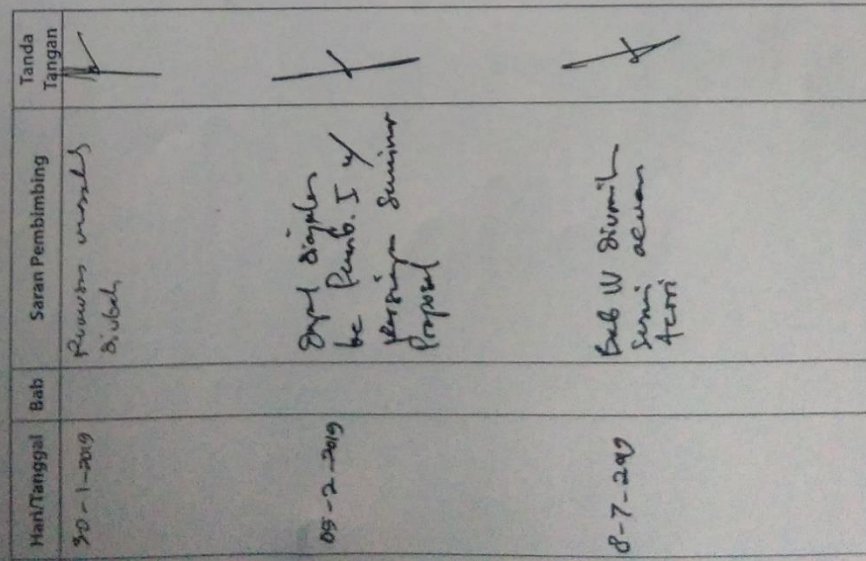 Hari/Tanggal Bab Saran Pembimbing Tanda Tangan
30-1-2019 Rumusan masalah
diubah
05-2-2019 Dapat diajukan
ke Pemb. I u/
persiapan seminar
Proposal
8-7-2019 Bab IV
sesuai acuan
teori